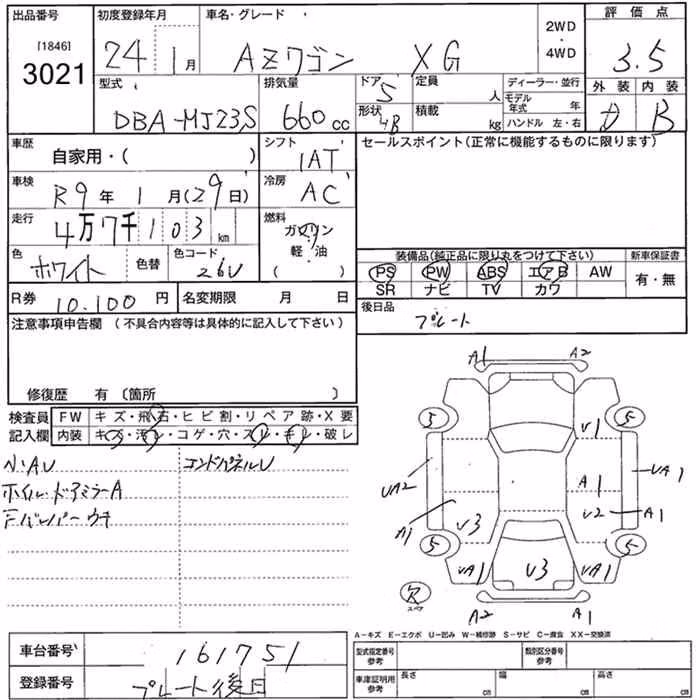 出品番号 [1846] 3021
初度登録年月 24 1月
車名・グレード AZワゴン XG
2WD・4WD
評価点 3.5
外装 内装 B
型式 DBA-MJ23S
排気量 660cc
ドア 5
形状 HB
定員 人
積載 kg
ディーラー・並行
モデル年式 年
ハンドル 左・右
車歴 自家用・( )
シフト IAT
セールスポイント(正常に機能するものに限ります)
車検 R9年 1月(29日)
冷房 AC
走行 4万7千103km
燃料 ガソリン 軽・油 ( )
色 ホワイト 色替
色コード 26U
装備品(純正品に限り丸をつけて下さい)
新車保証書
PS PW ABS エアB AW
SR ナビ TV カワ
有・無
R券 10.100円
名変期限 月 日
後日品 プレート
注意事項申告欄 (不具合内容等は具体的に記入して下さい)
修復歴 有 〔箇所 〕
検査員記入欄
FW キズ・飛石・ヒビ割・リペア跡・X要
内装 キズ・汚レ・コゲ・穴・スレ・キレ・破レ
小・AU
エンドパネルU
ホイル・ドアミラーA
Fバンパーウキ
A1 A2
5 5
U1
UA2 A1 UA1
A1 U2 A1
U3
5 5
UA1 U3 UA1
欠 スペア
A2 A1
A-キズ E-エクボ U-凹み W-補修跡 S-サビ C-腐食 XX-交換済
車台番号 161751
型式指定番号 参考
類別区分番号 参考
登録番号 プレート後日
車庫証明用 参考
長さ cm
幅 cm
高さ cm